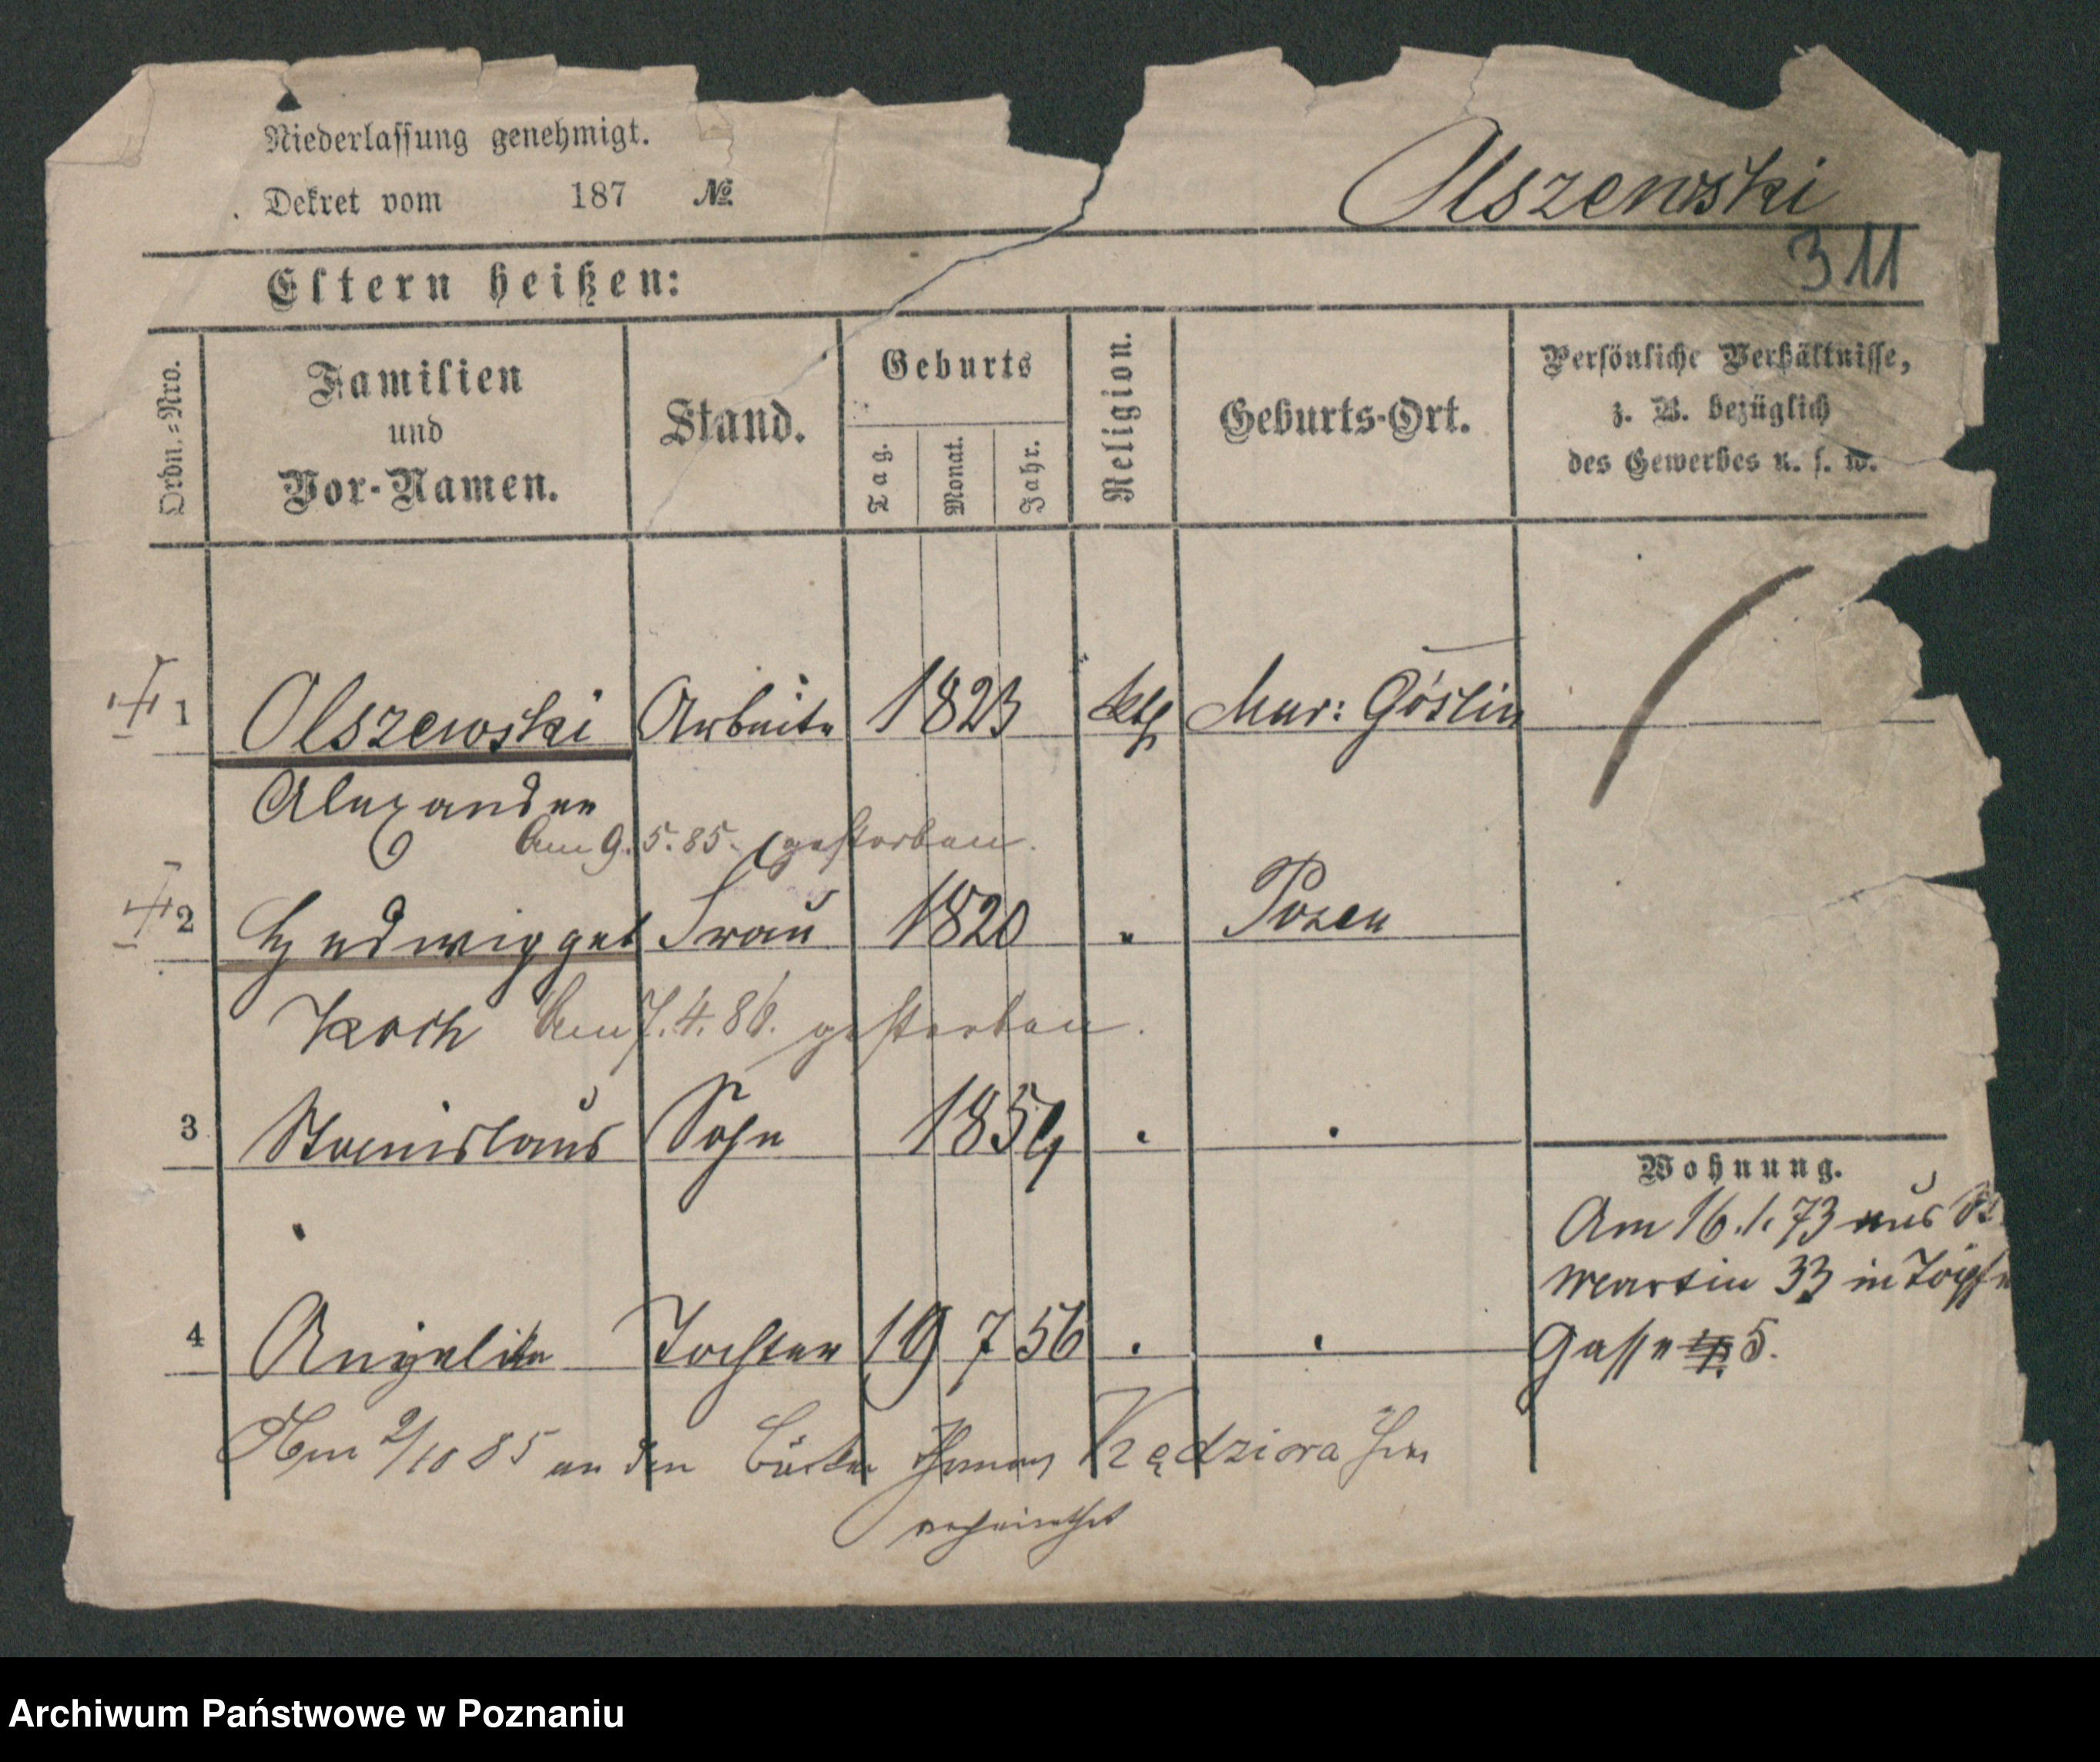 Niederlassung genehmigt.
Dekret vom 187 №
Olszewski
311
Eltern heißen:
Ordn.-Nro.
Familien
und
Vor-Namen.
Stand.
Geburts
Tag.
Monat.
Jahr.
Religion.
Geburts-Ort.
Persönliche Verhältnisse,
z. B. bezüglich
des Gewerbes u. s. w.
1 Olszewski Arbeiter 1823 kth Mur: Goslin
Alexander
Am 9.5.85. gestorben.
2 Hedwig geb Frau 1820 " Posen
Koch Am 7.4.86. gestorben.
3 Stanislaus Sohn 1854
Wohnung.
Am 16.1.73 aus St.
Martin 33 in Töpfer
Gasse 5.
4 Angelika Tochter 19 7 56
Am 2/10 85 an den Thomas Kędziora hier
verheirathet
Archiwum Państwowe w Poznaniu